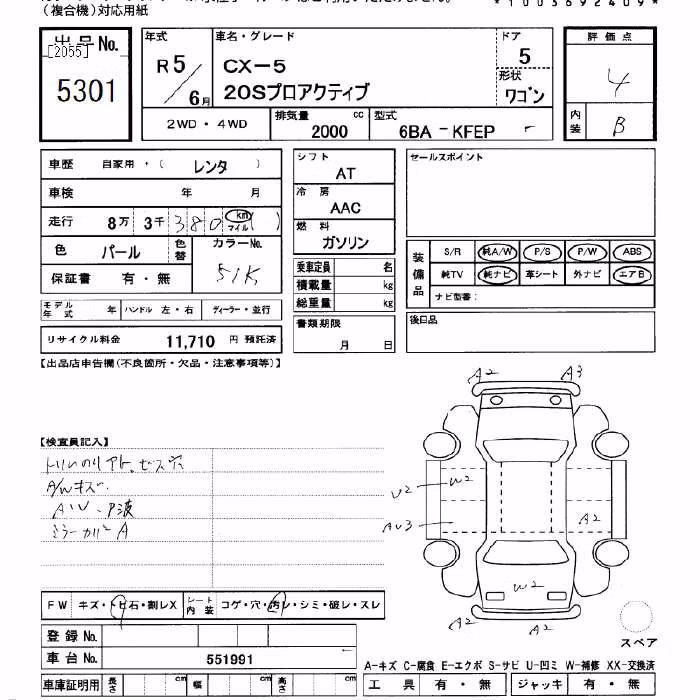 (複合機)対応用紙
*1003692409*
出品No.
[2055]
5301
年式
R5/6月
車名・グレード
CX-5
20Sプロアクティブ
ドア
5
形状
ワゴン
評価点
4
内装
B
2WD・4WD
排気量
2000
cc
型式
6BA-KFEP
車歴 自家用・( レンタ )
車検 年 月
走行 8万 3千 380 km マイル ( )
色 パール 色替 カラーNo. 51K
保証書 有・無
モデル年式 年 ハンドル 左・右 ディーラー・並行
リサイクル料金 11,710 円 預託済
シフト
AT
冷房
AAC
燃料
ガソリン
乗車定員 名
積載量 kg
総重量 kg
書類期限
月 日
セールスポイント
装備品
S/R 純A/W P/S P/W ABS
純TV 純ナビ 革シート 外ナビ エアB
ナビ型番:
後日品
【出品店申告欄(不良箇所・欠品・注意事項等)】
【検査員記入】
A/Wキズ
AU、P波
A2
A3
U2
W2
AU3
A2
W2
A2
A2
スペア
FW キズ・トビ石・割レX シート内装 コゲ・穴・汚レ・シミ・破レ・スレ
登録No.
車台No. 551991
車庫証明用 長さ cm 幅 cm 高さ cm
A-キズ C-腐食 E-エクボ S-サビ U-凹ミ W-補修 XX-交換済
工具 有・無 ジャッキ 有・無